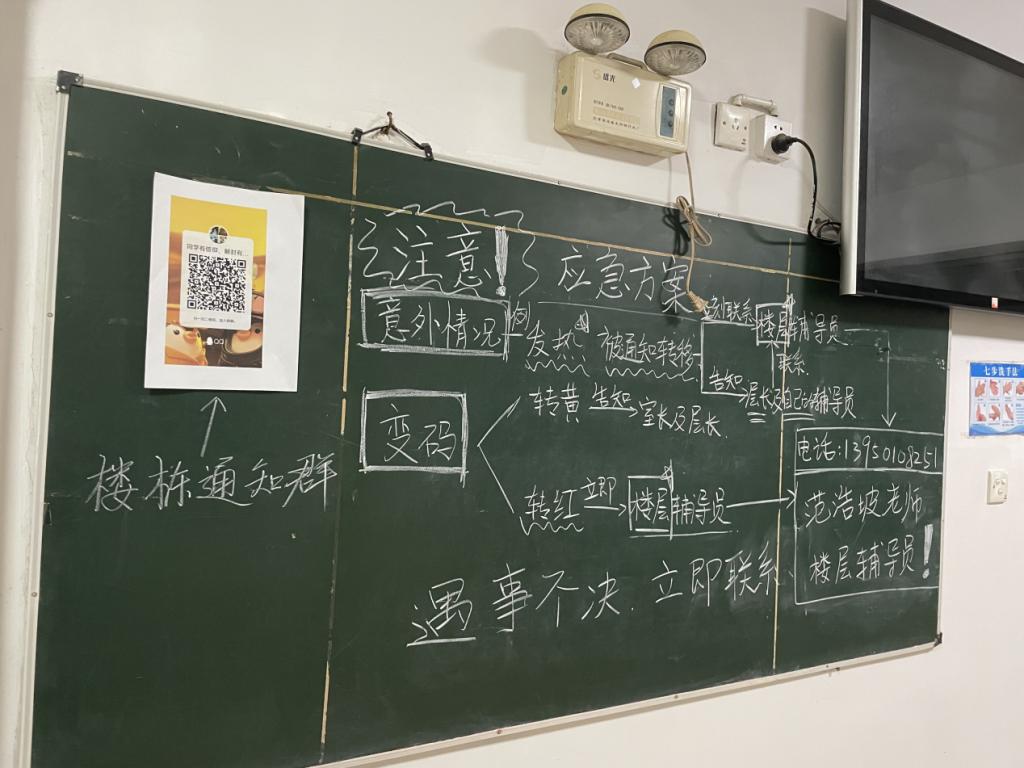 同学有信仰，解封有...
QQ
楼栋通知群
注意! 应急方案
意外情况 例 发热 被通知转移
立即联系 楼层辅导员
联系
告知 层长及自己的辅导员
变码
转黄 告知 室长及层长.
转红 立即 楼层辅导员
电话:13950108251
范浩坡老师
楼层辅导员!
遇事不决,立即联系
七步洗手法